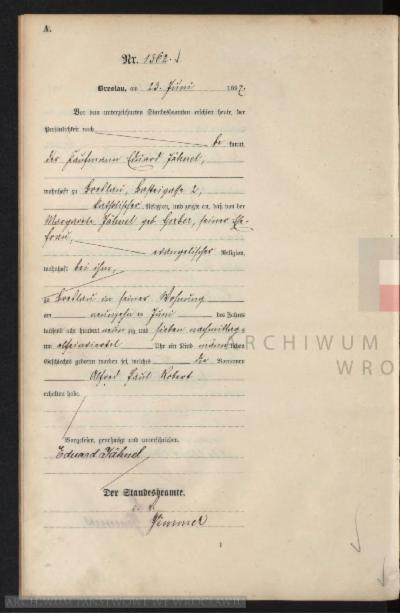 A.
Nr. 1362.
Breslau, am 23. Juni 1897.
Vor dem unterzeichneten Standesbeamten erschien heute, der
Persönlichkeit nach be kannt,
der Kaufmann Eduard Jähnel,
wohnhaft zu Breslau, 2,
katholischer Religion, und zeigte an, daß von der
Margarete Jähnel geb. Gerber, seiner Ehe-
frau,
evangelischer Religion,
wohnhaft bei ihm,
zu Breslau in seiner Wohnung
am neunzehn n Juni des Jahres
tausend acht hundert neun zig und sieben nachmittags
um Uhr ein Kind männ lichen
Geschlechts geboren worden sei, welches die Vornamen
Alfred Paul Robert
erhalten habe.
Vorgelesen, genehmigt und unterschrieben.
Eduard Jähnel
Der Standesbeamte.
ARCHIWUM
WRO
ARCHIWUM PAŃSTWOWE WE WROCŁAWIU